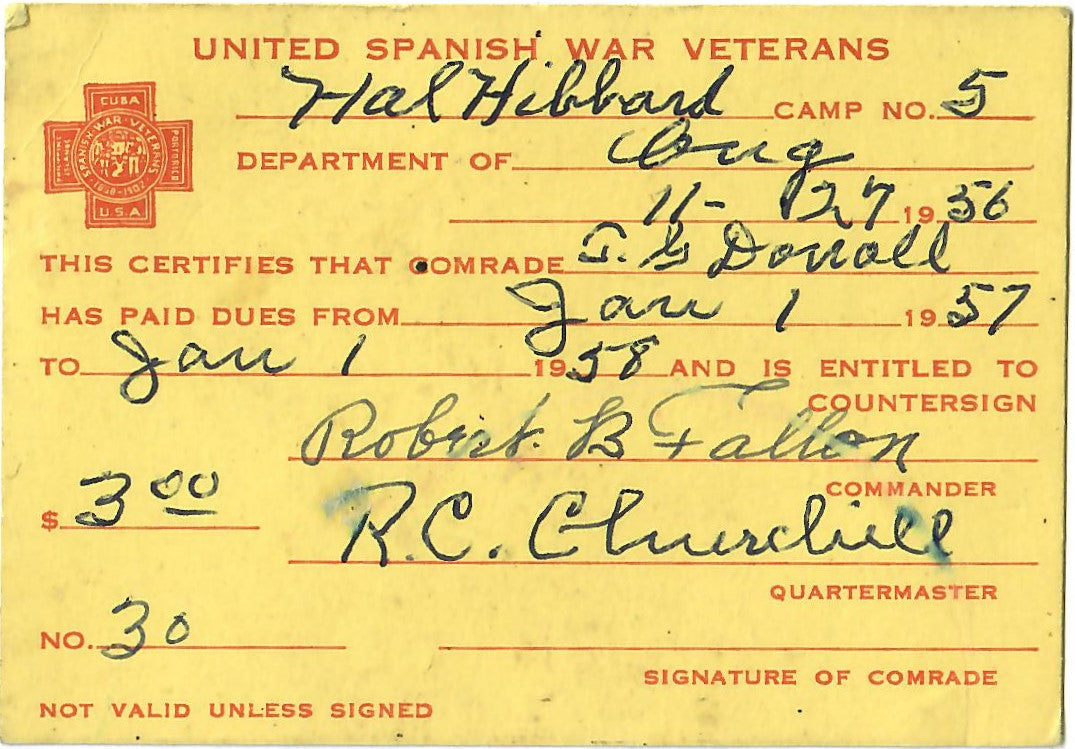 UNITED SPANISH WAR VETERANS
Hal Hibbard CAMP NO. 5
CUBA
SPANISH WAR VETERANS
PORTO RICO
1898-1902
U.S.A
DEPARTMENT OF Oreg
11-27 1956
THIS CERTIFIES THAT COMRADE T. G Donoll
HAS PAID DUES FROM Jan 1 1957
TO Jan 1 1958 AND IS ENTITLED TO
COUNTERSIGN
Robert B Fallon
COMMANDER
$ 3 00
R. C. Churchill
QUARTERMASTER
NO. 30
SIGNATURE OF COMRADE
NOT VALID UNLESS SIGNED